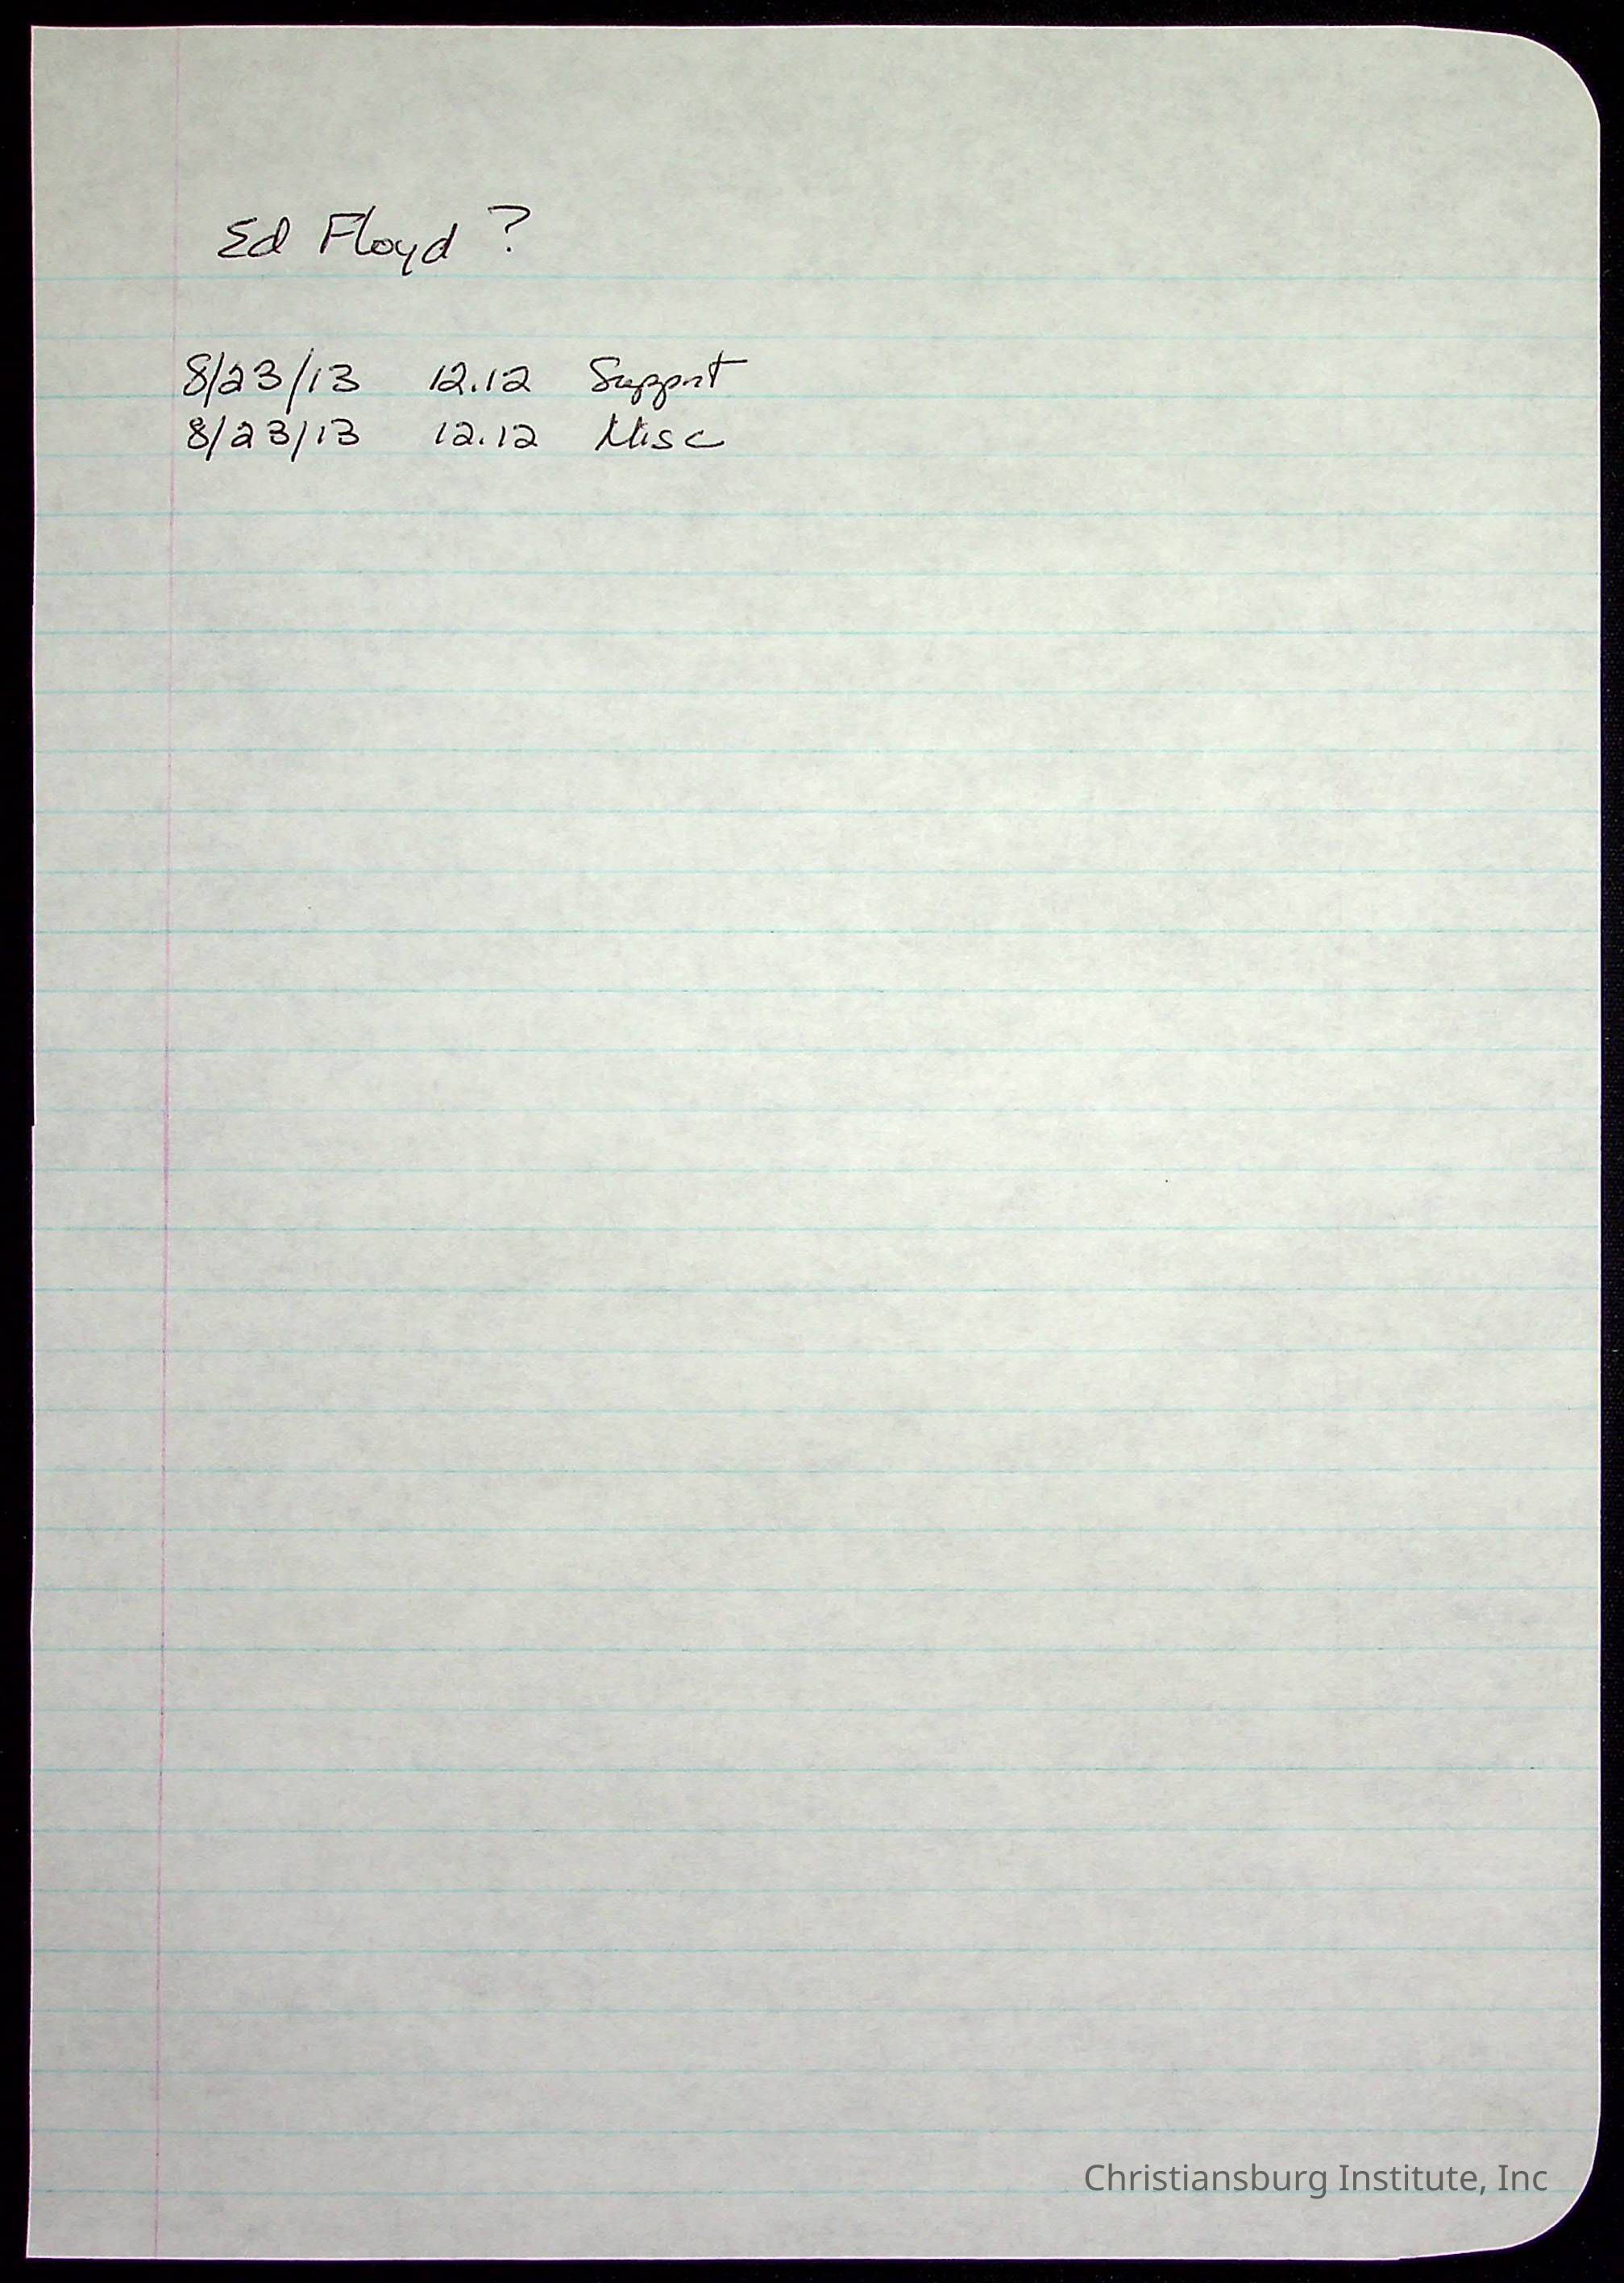 Ed Floyd ?
8/23/13 12.12 Support
8/23/13 12.12 Misc
Christiansburg Institute, Inc